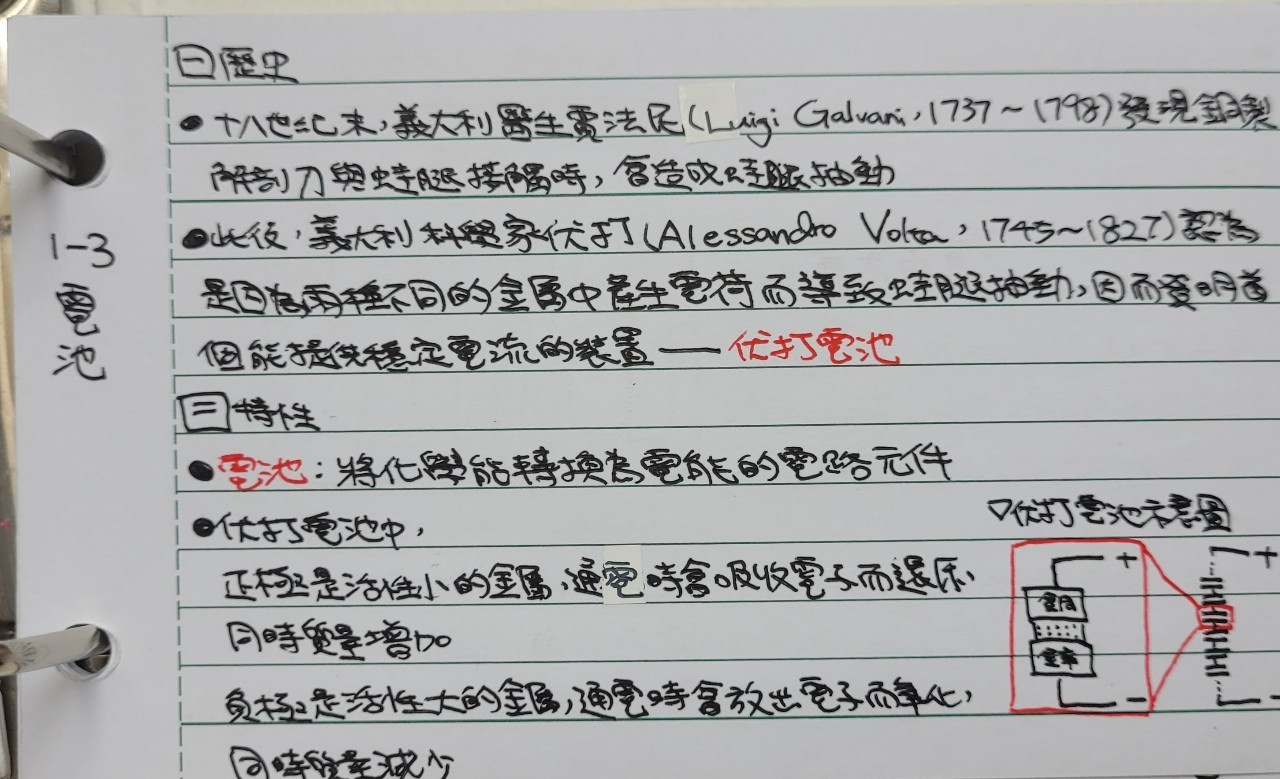 1-3
電
池
㊀歷史
●十八世紀末,義大利醫生賈法尼(Luigi Galvani,1737~1798)發現銅製
解剖刀與蛙腿接觸時,會造成蛙腿抽動
●此後,義大利科學家伏打(Alessandro Volta,1745~1827)認為
是因為兩種不同的金屬中產生電荷而導致蛙腿抽動,因而發明首
個能提供穩定電流的裝置——伏打電池
㊂特性
●電池:將化學能轉換為電能的電路元件
●伏打電池中,
▽伏打電池示意圖
正極是活性小的金屬,通電時會吸收電子而還原,
同時質量增加
負極是活性大的金屬,通電時會放出電子而氧化,
同時質量減少
+
銅
鋅
-
+
-